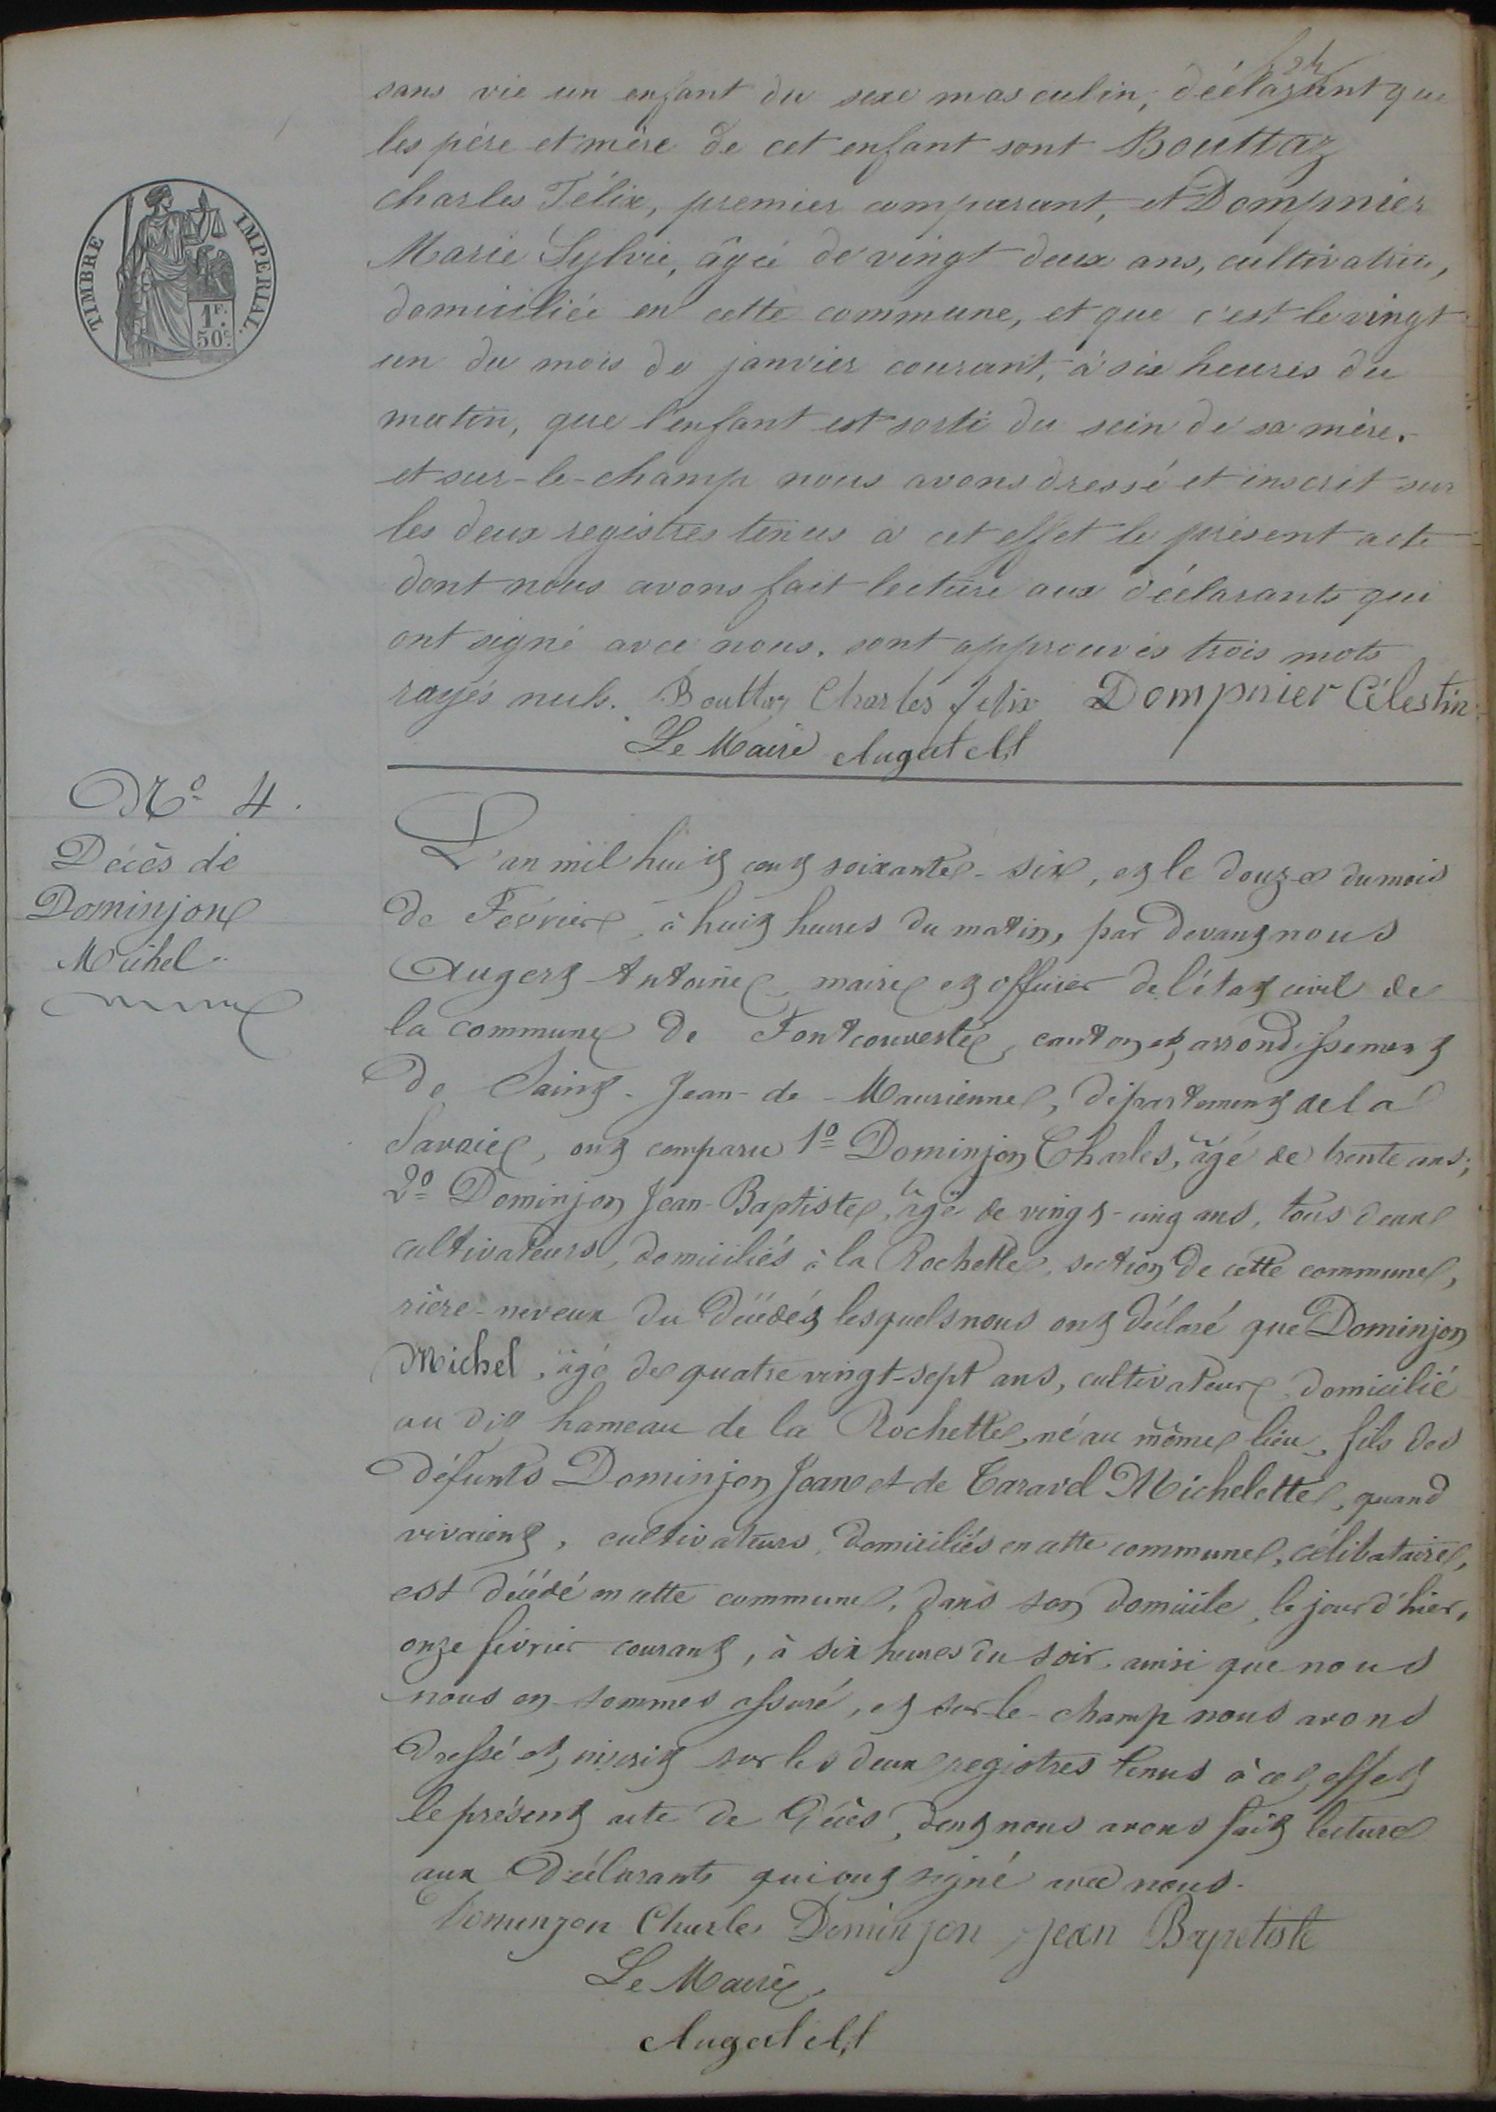 sans vie un enfant du sexe masculin, déclarant que
les père et mère de cet enfant sont Bouttaz
charles Félix, premier comparant, et Dompnier
Marie Sylvie, âgée de vingt deux ans, cultivatrice,
domiciliée en cette commune, et que c'est le vingt
un du mois de janvier courant, à six heures du
matin, que l'enfant est sorti du sein de sa mère.
et sur-le-champ nous avons dressé et inscrit sur
les deux registres tenus à cet effet le présent acte
dont nous avons fait lecture aux déclarants qui
ont signé avec nous. sont approuvés trois mots
rayés nuls. Bouttaz Charles félix Dompnier Célestin
Le Maire Augert Ant
TIMBRE IMPERIAL
1F.
50c.
No 4.
Décès de
Dominjon
Michel
L'an mil huit cent soixante-six, et le douze du mois
de Février, à huit heures du matin, par devant nous
Augert Antoine, maire et officier de l'état civil de
la commune de Fontcouverte, canton et arrondissement
de Saint-Jean-de-Maurienne, département de la
Savoie, ont comparu 1o Dominjon Charles, âgé de trente ans;
2o Dominjon Jean-Baptiste, âgé de vingt-cinq ans, tous deux
cultivateurs, domiciliés à la Rochette, section de cette commune,
rière-neveux du décédé, lesquels nous ont déclaré que Dominjon
Michel, âgé de quatre vingt-sept ans, cultivateur, domicilié
au dit hameau de la Rochette, né au même lieu, fils des
défunts Dominjon Jean et de Taravel Michelette, quand
vivaient, cultivateurs, domiciliés en cette commune, célibataire,
est décédé en cette commune, dans son domicile, le jour d'hier,
onze février courant, à six heures du soir, ainsi que nous
nous en sommes assuré, et sur-le-champ nous avons
dressé et inscrit sur les deux registres tenus à cet effet
le présent acte de décès, dont nous avons fait lecture
aux déclarants qui ont signé avec nous.
Dominjon Charles Dominjon jean Baptiste
Le Maire,
Augert Ant